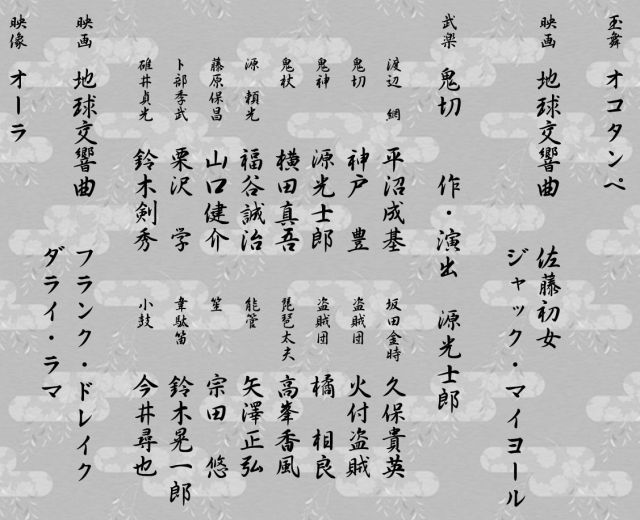 玉舞 オコタンペ
映画 地球交響曲 佐藤初女
ジャック・マイヨール
武楽 鬼切 作・演出 源光士郎
渡辺 綱 平沼成基
坂田金時 久保貴英
鬼切 神戸 豊
盗賊団 火付盗賊
鬼神 源光士郎
盗賊団 橘 相良
鬼杖 横田真吾
琵琶太夫 高峯香風
源 頼光 福谷誠治
能管 矢澤正弘
藤原保昌 山口健介
笙 宗田 悠
卜部季武 栗沢 学
韋駄笛 鈴木晃一郎
碓井貞光 鈴木剣秀
小鼓 今井尋也
映画 地球交響曲 フランク・ドレイク
ダライ・ラマ
映像 オーラ